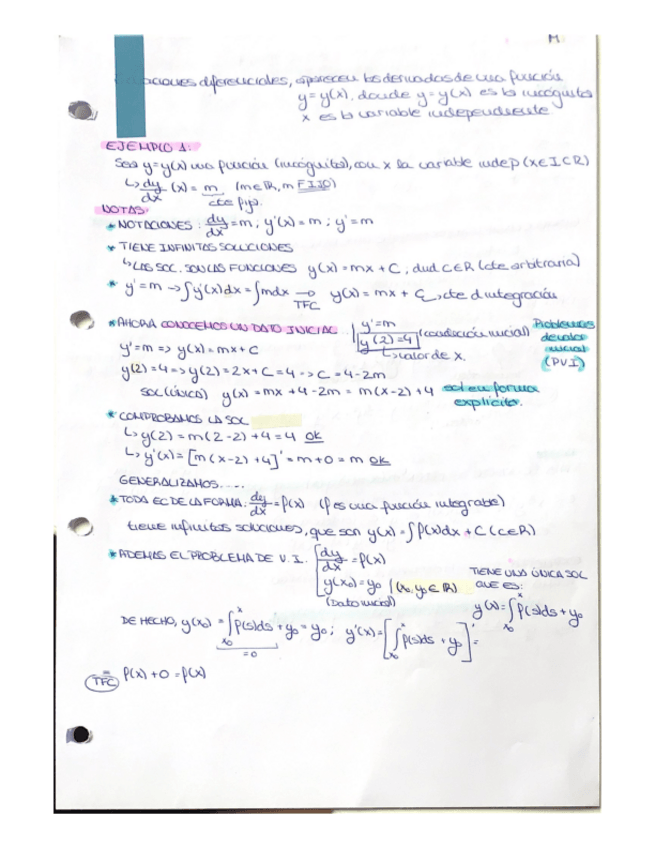 M
aciones diferenciales, aparecen las derivadas de una función
y=y(x), donde y=y(x) es la incógnita
x es la variable independiente
EJEMPLO 1:
Sea y=y(x) una función (incógnita), con x la variable indep (x∈I⊂R)
↳ dy/dx (x) = m (m∈R, m FIJO)
cte fija.
NOTAS:
* NOTACIONES: dy/dx = m; y'(x)=m; y'=m
* TIENE INFINITAS SOLUCIONES
↳ LAS SOL. SON LAS FUNCIONES y(x)=mx+C, C∈R (cte arbitraria)
* y'=m → ∫y'(x)dx = ∫mdx → TFC y(x) = mx + C, cte d integración
* AHORA CONOCEMOS UN DATO INICIAL | y'=m
y(2)=4 (condición inicial) Problemas de valor inicial (PVI)
→ valor de x.
y'=m => y(x)=mx+C
y(2)=4 => y(2)=2x+C=4 -> C=4-2m
SOL (ÚNICA) y(x) = mx +4-2m = m(x-2)+4 sol en forma explícita.
* COMPROBAMOS LA SOL
↳ y(2) = m(2-2)+4=4 ok
↳ y'(x)=[m(x-2)+4]'=m+0=m ok
GENERALIZAMOS....
* TODA EC DE LA FORMA: dy/dx = f(x) (f es una función integrable)
tiene infinitas soluciones, que son y(x)=∫f(x)dx+C (C∈R)
* ADEMAS EL PROBLEMA DE V.I. [ dy/dx = f(x)
y(x₀)=y₀ (x₀,y₀∈R)
(Dato inicial)
TIENE UNA ÚNICA SOL
QUE ES:
y(x)=∫_{x₀}^{x} f(s)ds+y₀
DE HECHO, y(x₀)=∫_{x₀}^{x} f(s)ds + y₀ = y₀; y'(x)=[∫_{x₀}^{x} f(s)ds + y₀]'=
=0
= TFC f(x)+0=f(x)